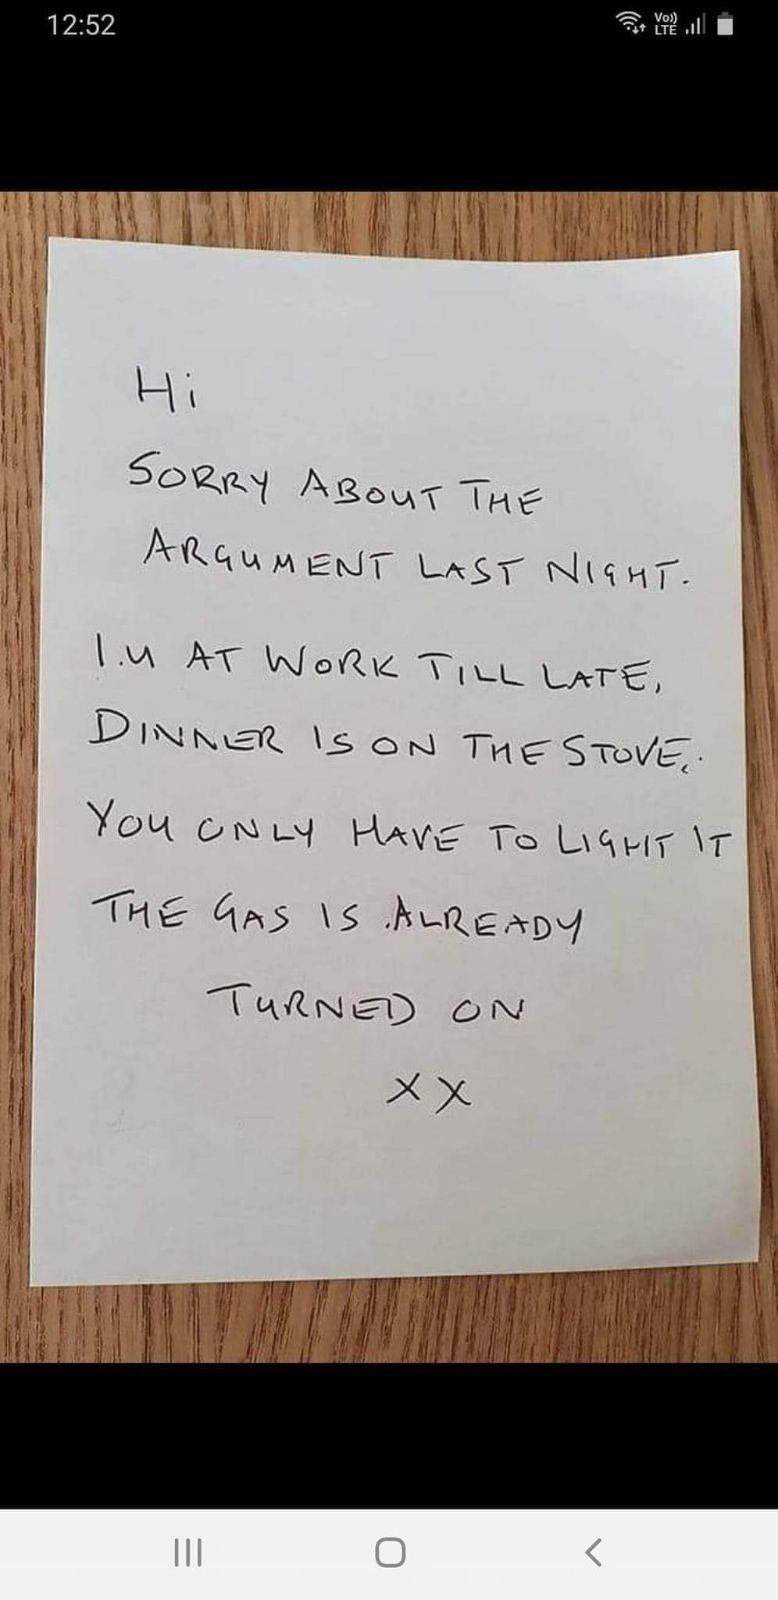 12:52
Vo))
LTE
Hi
SORRY ABOUT THE
ARGUMENT LAST NIGHT.
I.M AT WORK TILL LATE,
DINNER IS ON THE STOVE,.
YOU ONLY HAVE TO LIGHT IT
THE GAS IS .ALREADY
TURNED ON
XX